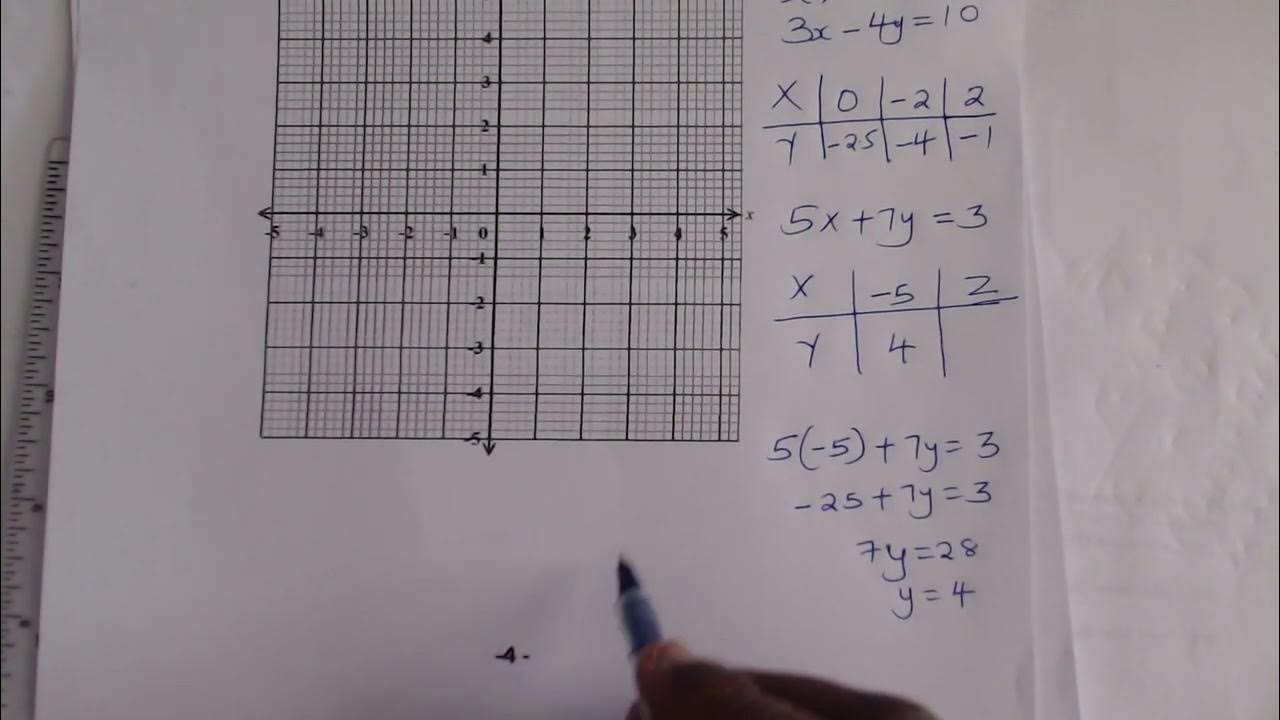 3x - 4y = 10
X 0 -2 2
Y -2.5 -4 -1
5x + 7y = 3
X -5 2
Y 4
5(-5) + 7y = 3
-25 + 7y = 3
7y = 28
y = 4
4
3
2
1
x
-5 -4 -3 -2 -1 0 1 2 3 4 5
-1
-2
-3
-4
-5
-4-